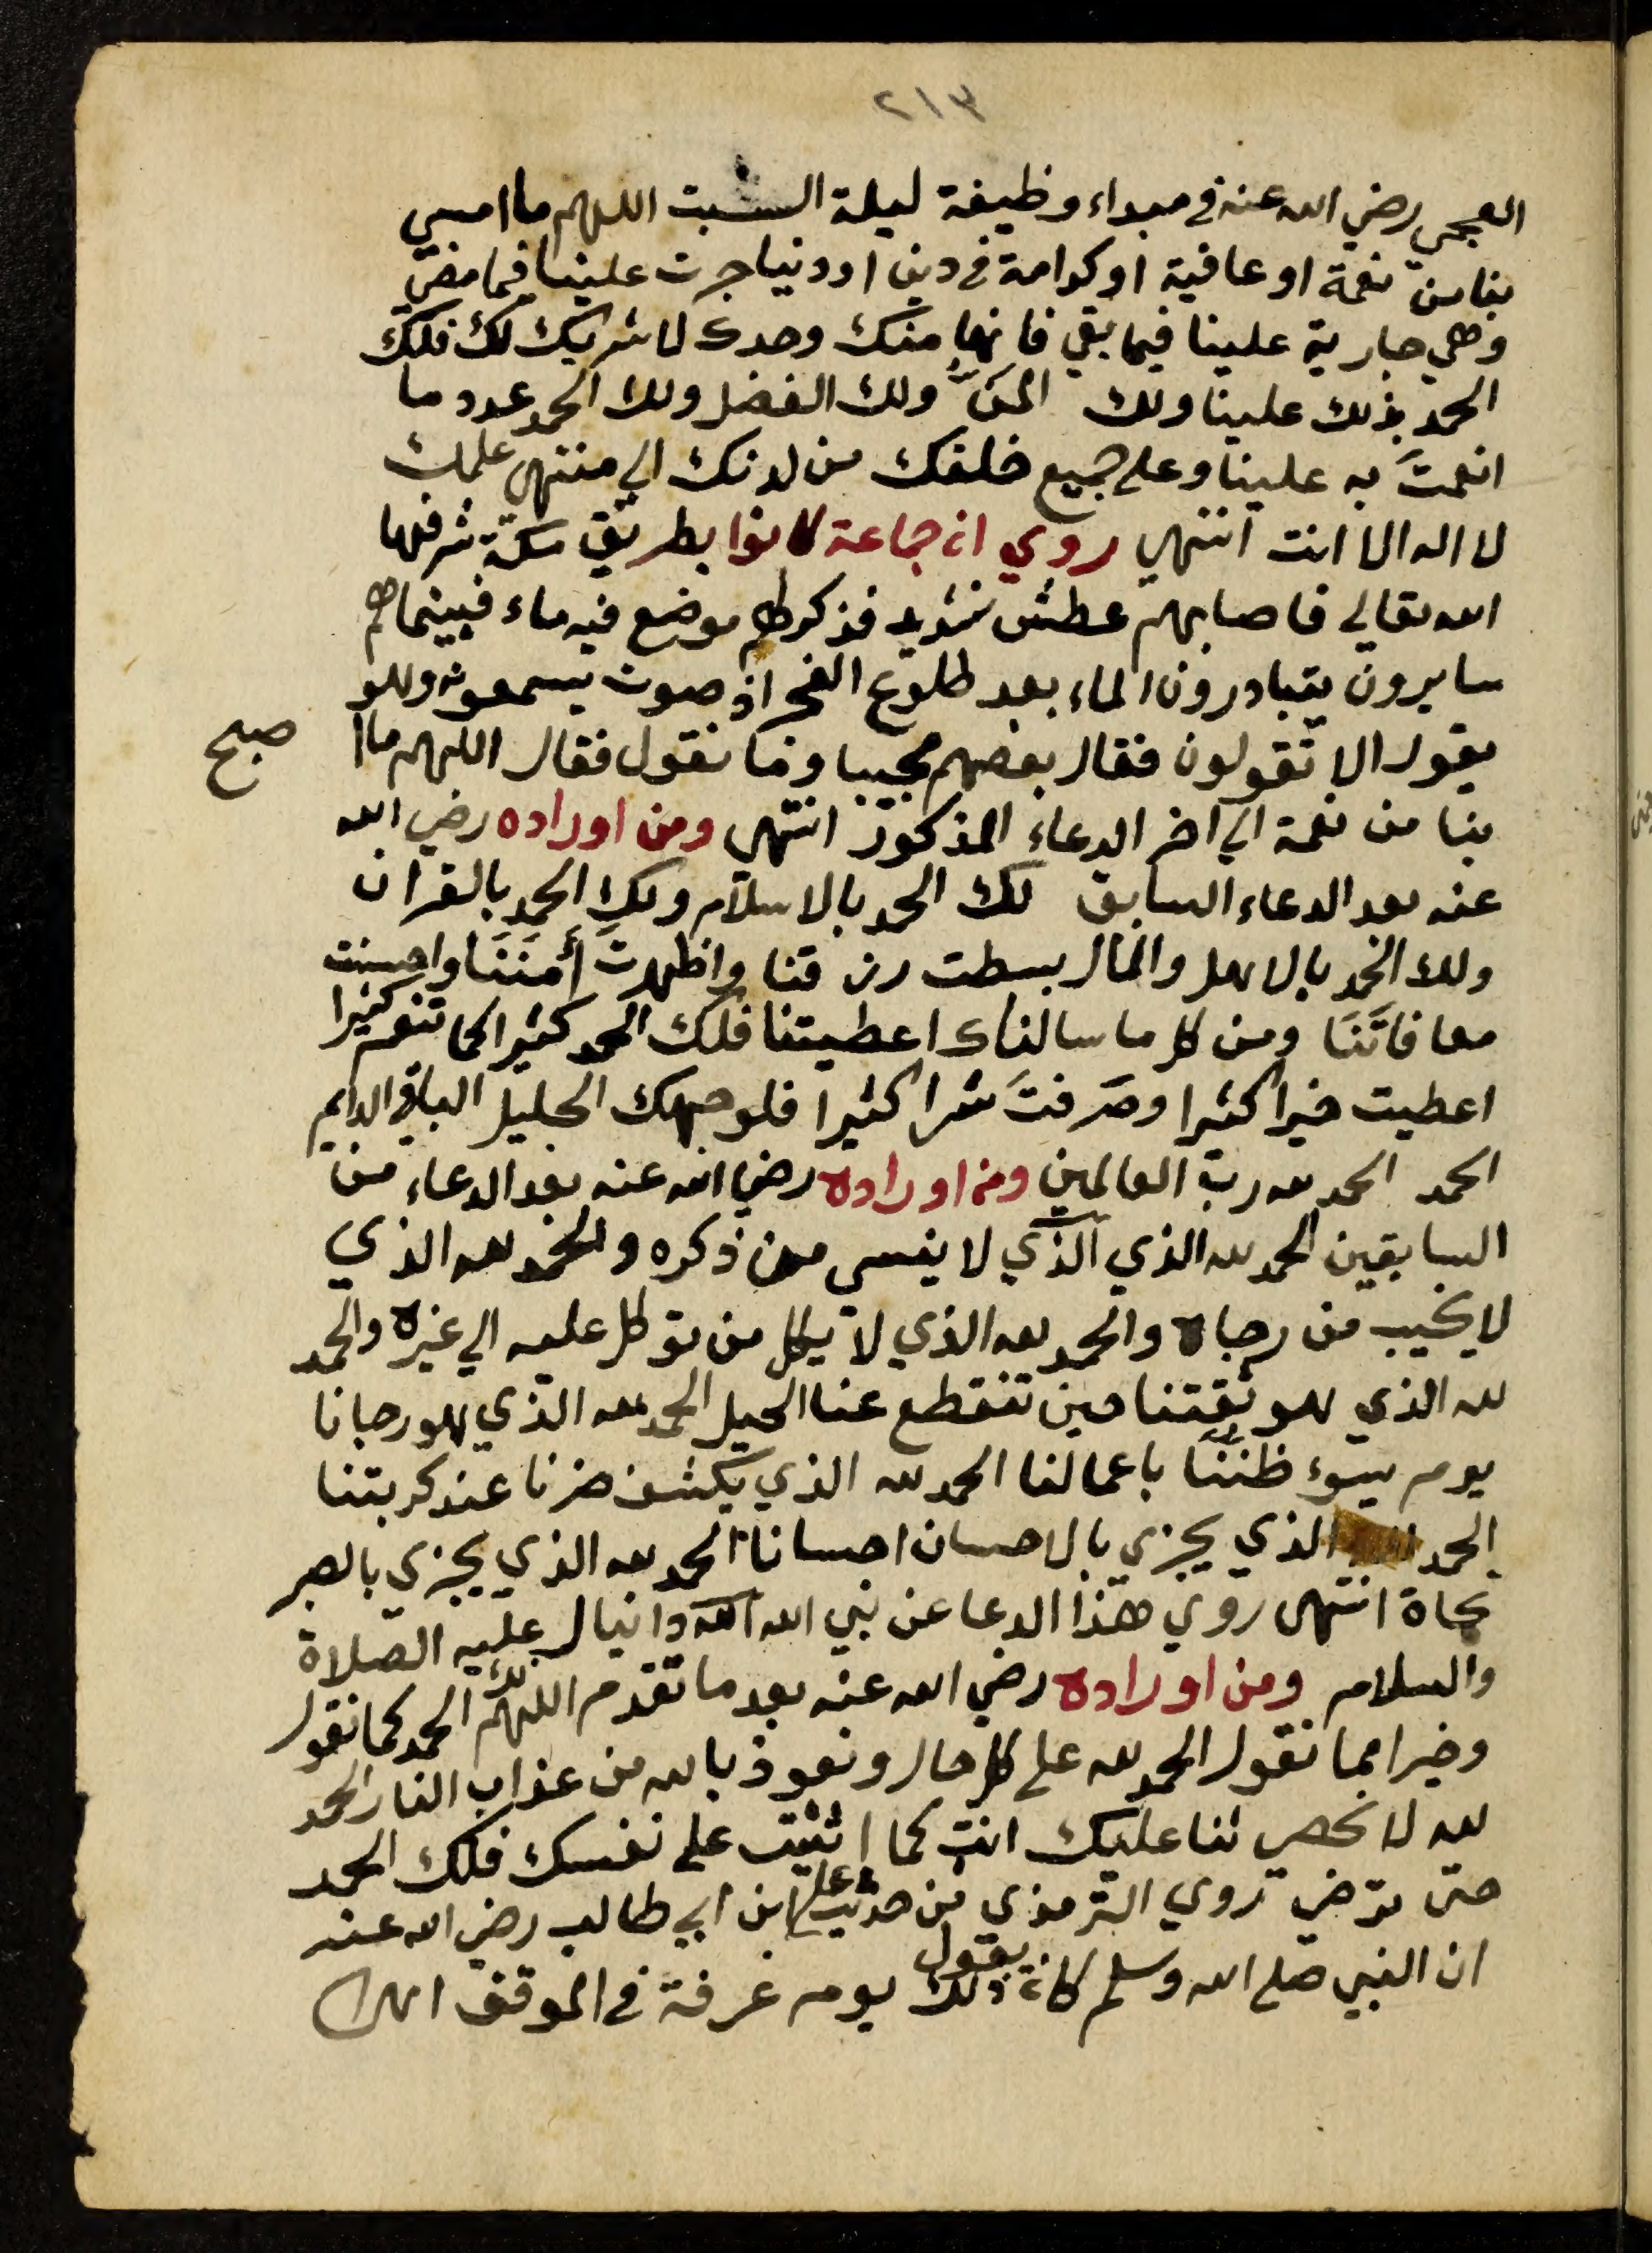 ٢١٣
العجمي رضي الله عنه في مبداء وظيفة ليلة السبت اللهم ما امسي
بنا من نعمة او عافية او كرامة في دين او دنيا جرت علينا فيما مضي
وهي جارية علينا فيما بقي فانها منك وحدك لا شريك لك فلك
الحمد بذلك علينا ولك المنّ ولك الفضل ولك الحمد عدد ما
انعمتَ به علينا وعلي جميع خلقك من لدنك الي منتهي علمك
لا اله الا انت انتهي روي ان جماعة كانوا بطريق مكة شرفها
الله تعالي فاصابهم عطش شديد فذكر لهم موضع فيه ماء فبينما هم
سايرون يتبادرون الماء بعد طلوع الفجر اذ صوت يسمعونه وهو
يقول الا تقولون فقال بعضهم مجيبا وما نقول فقال اللهم ما ا
صبح
بنا من نعمة الي اخر الدعاء المذكور انتهي ومن اوراده رضي الله
عنه بعد الدعاء السابق لك الحمد بالاسلام ولك الحمد بالقران
ولك الحمد بالاهل والمال بسطت رزقنا واظهرتَ أَمْنَنَا واحسنت
معافاتَنَا ومن كل ما سالناك اعطيتنا فلك الحمد كثيرا كما تنعم كثيرا
اعطيت خيرا كثيرا وصرفتَ شرا كثيرا فلوجهك الجليل الباقي الدايم
الحمد الحمد لله رب العالمين ومن اوراده رضي الله عنه بعد الدعاء من
السابقين الحمد لله الذي الذي لا ينسي من ذكره والحمد لله الذي
لا يخيب من رجاه والحمد لله الذي لا يكل من توكل عليه الي غيره والحمد
لله الذي هو ثقتنا حين تنقطع عنا الحيل الحمد لله الذي هو رجانا
يوم يسوء ظنُّنَا باعمالنا الحمد لله الذي يكشف ضرنا عند كربتنا
الحمد لله الذي يجزي بالاحسان احسانا الحمد لله الذي يجزي بالصبر
نجاة انتهي روي هذا الدعا عن نبي الله الله دانيال عليه الصلاة
والسلام ومن اوراده رضي الله عنه بعد ما تقدم اللهم لك الحمد كما نقول
وخيرا مما نقول الحمد لله علي كل حال ونعوذ بالله من عذاب النار الحمد
لله لا نحصي ثنا عليك انت كما اثنيت علي نفسك فلك الحمد
حتي ترضي روي الترمذي من حديث علي ابن ابي طالب رضي الله عنه
ان النبي صلي الله وسلم كان يقول ذلك يوم عرفة في الموقف